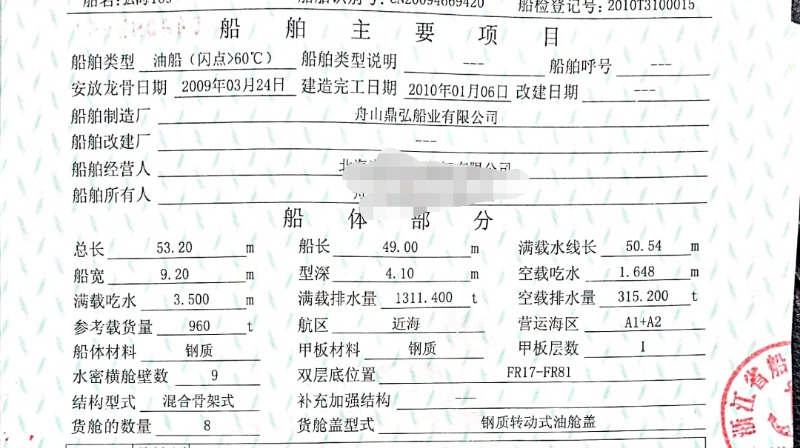 船舶识别号: CN20094669420 船检登记号: 2010T3100015
船舶主要项目
船舶类型 油船(闪点>60℃) 船舶类型说明 --- 船舶呼号 ---
安放龙骨日期 2009年03月24日 建造完工日期 2010年01月06日 改建日期 ---
船舶制造厂 舟山鼎弘船业有限公司
船舶改建厂 ---
船舶经营人 北海 有限公司
船舶所有人 舟
船体部分
总长 53.20 m 船长 49.00 m 满载水线长 50.54 m
船宽 9.20 m 型深 4.10 m 空载吃水 1.648 m
满载吃水 3.500 m 满载排水量 1311.400 t 空载排水量 315.200 t
参考载货量 960 t 航区 近海 营运海区 A1+A2
船体材料 钢质 甲板材料 钢质 甲板层数 1
水密横舱壁数 9 双层底位置 FR17-FR81
结构型式 混合骨架式 补充加强结构 ---
货舱的数量 8 货舱盖型式 钢质转动式油舱盖
浙江省船